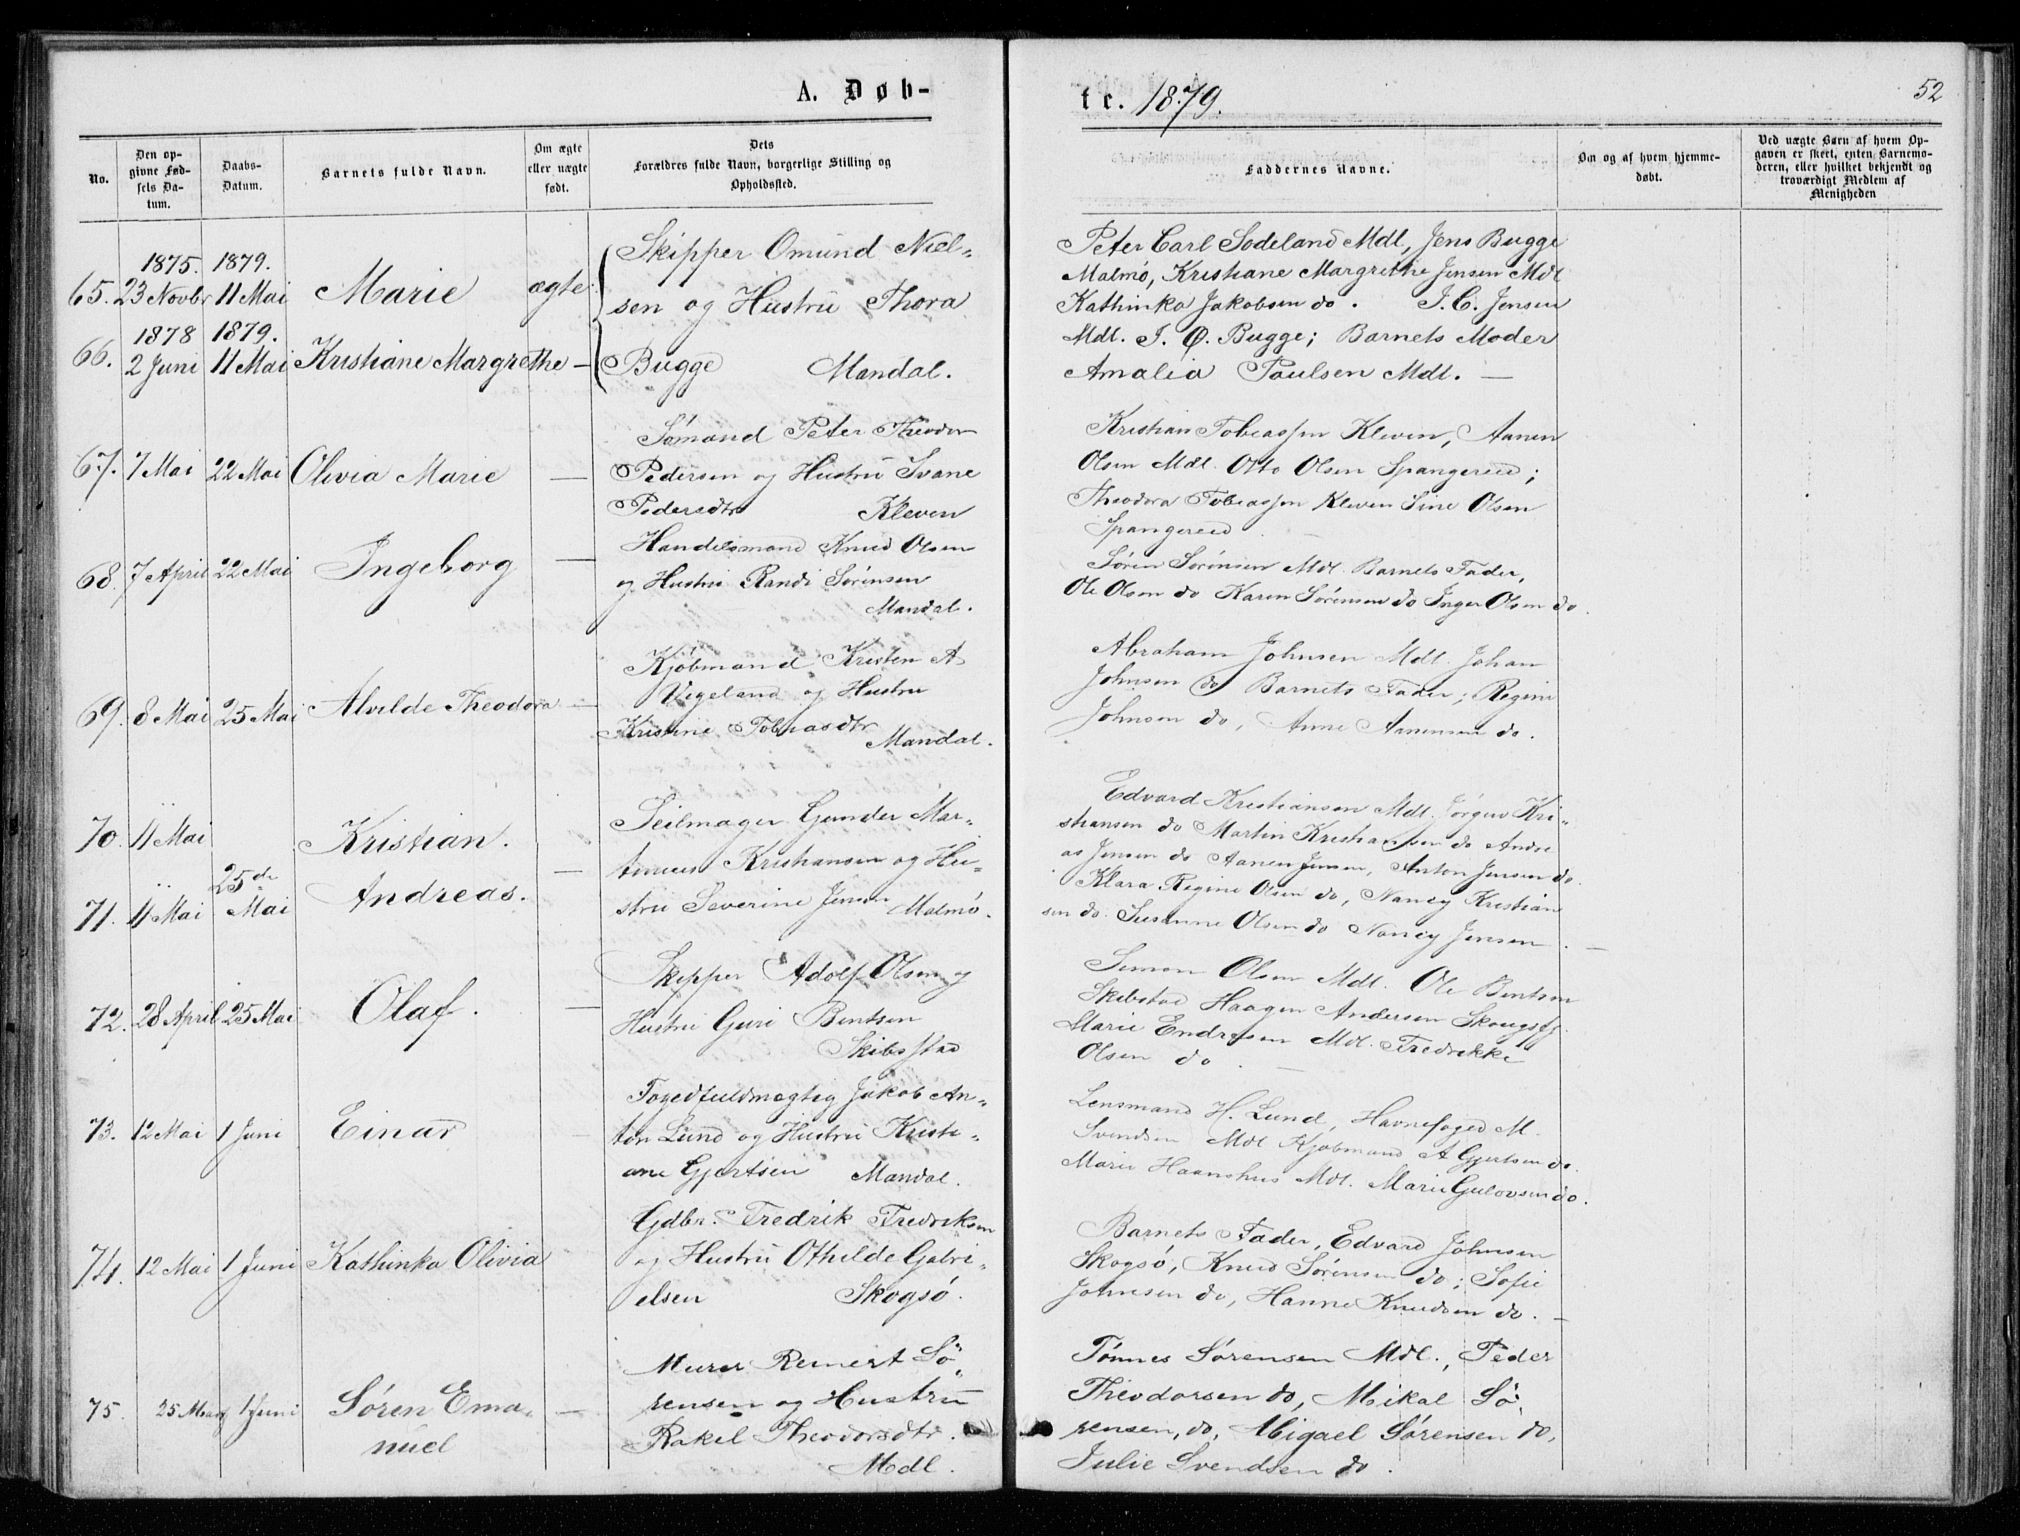 A. Døb-
te. 1879.
52
No.
Den op-
givne Fød-
sels Da-
tum.
Daabs-
Datum.
Barnets fulde Navn.
Om ægte
eller uægte
født.
Dets
Forældres fulde Navn, borgerlige Stilling og
Opholdssted.
Faddernes Navne.
Om og af hvem hjemme-
døbt.
Ved uægte Børn af hvem Op-
gaven er skeet, enten Barnemo-
deren, eller hvilket bekjendt og
troværdigt Medlem af
Menigheden
65. 1875. 23 Novbr 1879. 11 Mai Marie ægte
66. 1878 2 Juni 1879. 11 Mai Kristiane Margrethe —
Skipper Omund Niel-
sen og Hustru Thora
Bugge Mandal.
Peter Carl Sodeland Mdl, Jens Bugge
Malmø, Kristiane Margrethe Jensen Mdl
Kathinka Jakobsen do. J. C. Jensen
Mdl. J. Ø. Bugge; Barnets Moder
Amalia Paulsen Mdl. —
67. 7 Mai 22 Mai Olivia Marie —
Sømand Peter Theodor
Pedersen og Hustru Ivane
Pedersdtr Kleven
Kristian Tobiassen Kleven, Aanen
Olsen Mdl. Otto Olsen Spangereid;
Theodora Tobiassen Kleven Sine Olsen
Spangereid
68. 7 April 22 Mai Ingeborg —
Handelsmand Knud Olsen
og Hustru Randi Sørensen
Mandal.
Søren Sørensen Mdl. Barnets Fader,
Ole Olsen do Karen Sørensen do Inger Olsen do.
69. 8 Mai 25 Mai Alvilde Theodora —
Kjøbmand Kristen A
Vigeland og Hustru
Kristine Tobiasdtr
Mandal.
Abraham Johnsen Mdl. Johan
Johnsen do Barnets Fader; Regine
Johnsen do, Anne Aanensen do.
70. 11 Mai Kristian.
71. 11 Mai 25de Mai Andreas. —
Seilmager Gunder Mar-
tinius Kristiansen og Hu-
stru Severine Jensen Malmø.
Edvard Kristiansen Mdl. Jørgen Kri-
stiansen do Martin Kristiansen do Andre
as Jensen do Aanen Jensen, Anton Jensen do.
Klara Regine Olsen do, Nancy Kristian
sen do. Susanne Olsen do Nancy Jensen. —
72. 28 April 25 Mai Olaf. —
Skipper Adolf Olsen og
Hustru Guri Bentsen
Skibsstad
Simon Olsen Mdl. Ole Bentsen
Skibstad Haagen Andersen
Marie Endresen Mdl. Fredrikke
Olsen do. —
73. 12 Mai 1 Juni Einar
Fogedfuldmægtig Jakob An-
ton Lund og Hustru Kristi-
ane Gjertsen Mandal.
Lensmand H. Lund, Havnefoged M.
Svendsen Mdl Kjøbmand A Gjertsen do.
Marie Haanshus Mdl. Marie Gulovsen do.
74. 12 Mai 1 Juni Kathinka Olivia
Gdbr. Fredrik Fredriksen
og Hustru Othilde Gabri-
elsen Skogsø.
Barnets Fader, Edvard Johnsen
Skogsø, Knud Sørensen do; Sofie
Johnsen do, Hanne Knudsen do. —
75. 25 Marts 1 Juni Søren Ema-
nuel —
Murer Reinert Sø-
rensen og Hustru
Rakel Theodorsdtr.
Mdl.
Tønnes Sørensen Mdl., Peder
Theodorsen do, Mikal Sø-
rensen, do, Abigael Sørensen do,
Julie Svendsen do.